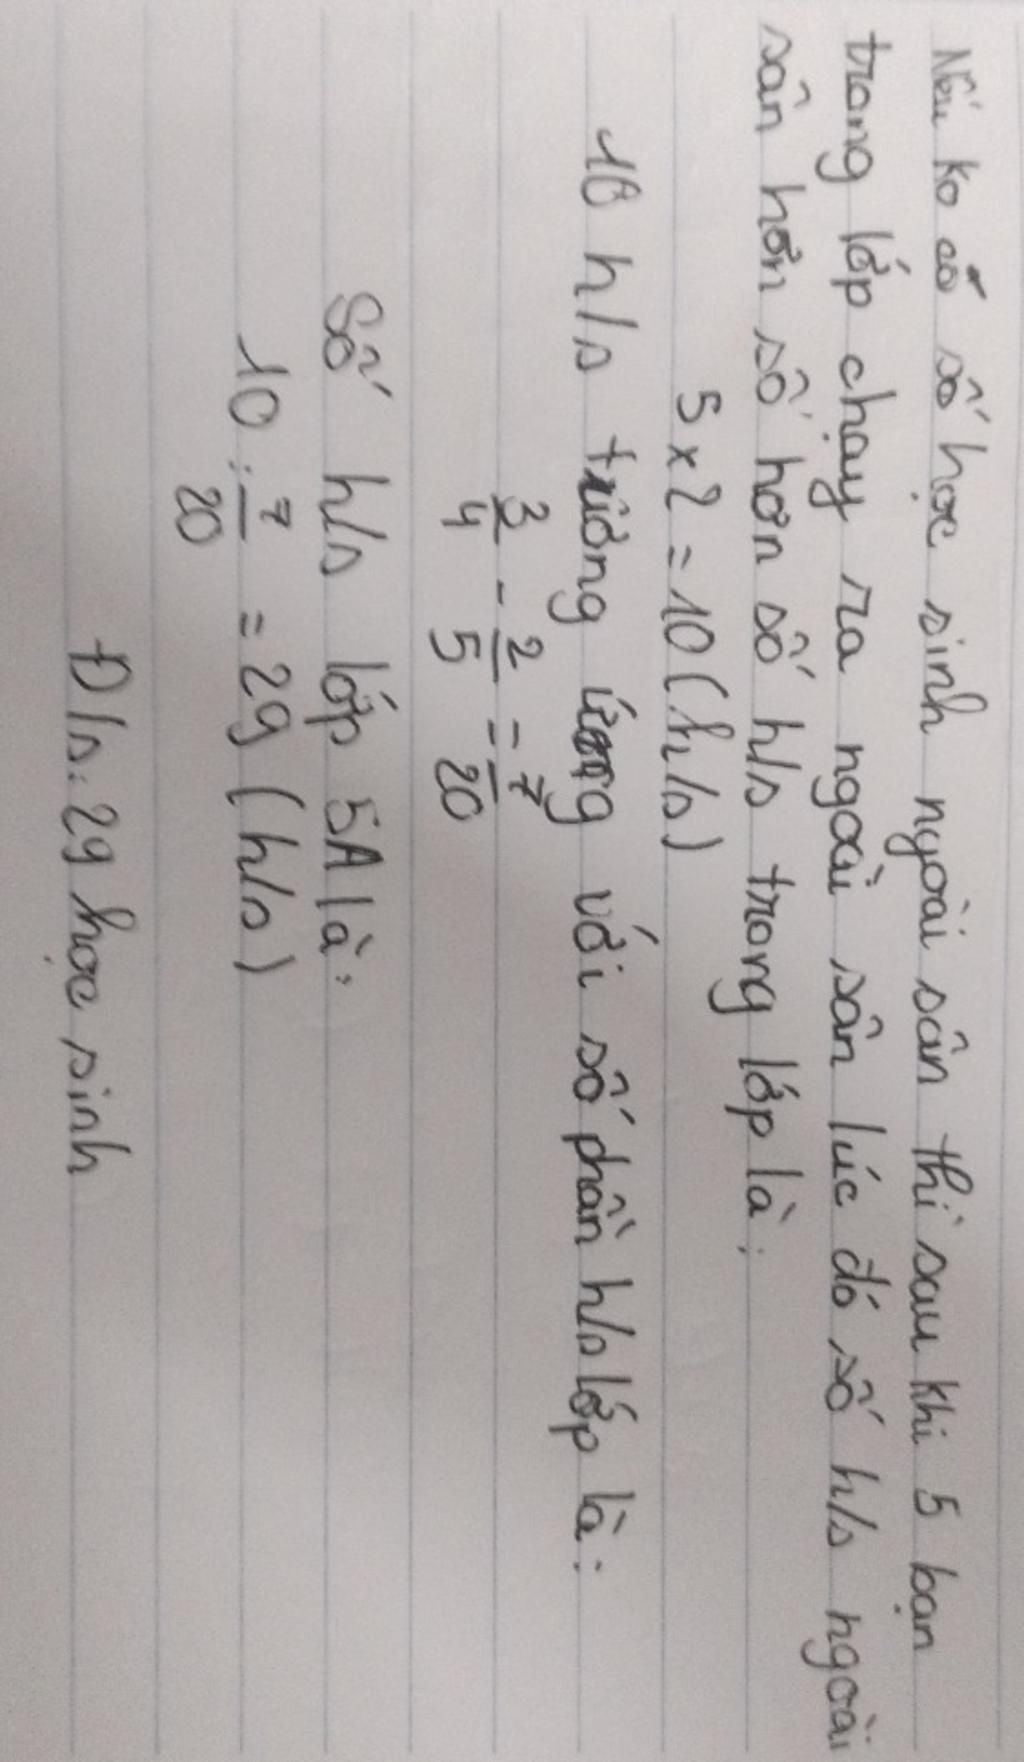 Nếu ko có số học sinh ngoài sân thì sau khi 5 bạn
trong lớp chạy ra ngoài sân lúc đó số h/s ngoài
sân hơn số hơn số h/s trong lớp là:
5 x 2 = 10 (h/s)
10 h/s tương ứng với số phần h/s lớp là:
3/4 - 2/5 = 7/20
Số h/s lớp 5A là:
10 : 7/20 = 29 (h/s)
Đ/s: 29 học sinh